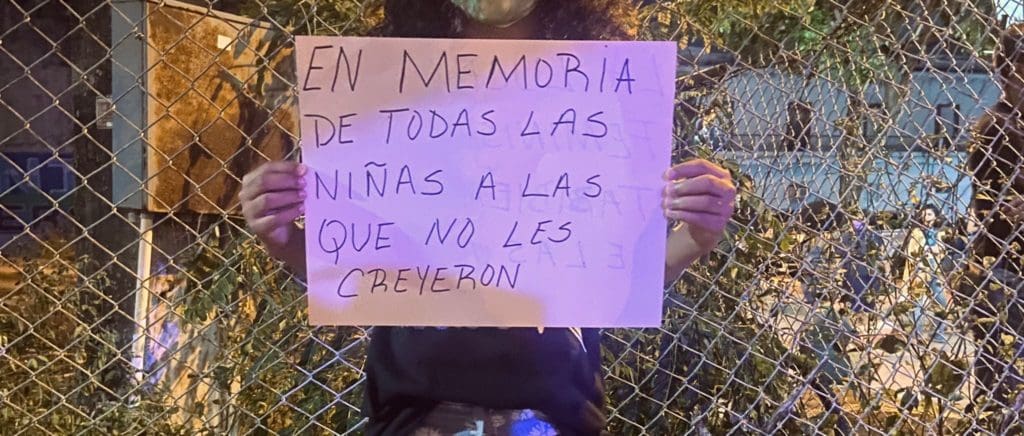 EN MEMORIA
DE TODAS LAS
NIÑAS A LAS
QUE NO LES
CREYERON